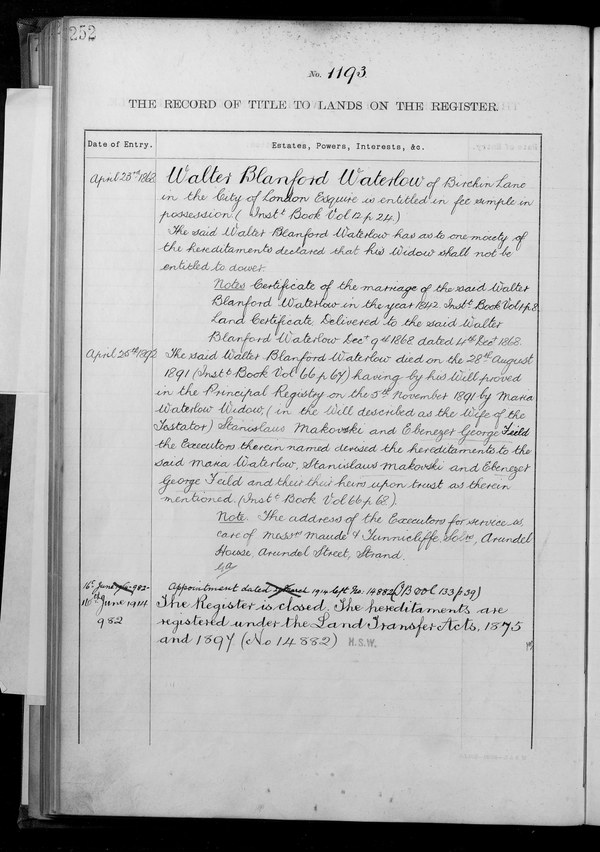 252
No. 1193
THE RECORD OF TITLE TO LANDS ON THE REGISTER.
Date of Entry.
Estates, Powers, Interests, &c.
April 25th 1868
Walter Blanford Waterlow of Birchin Lane
in the City of London Esquire is entitled in fee simple in
possession. (Instt Book Vol 12 p 24.)
The said Walter Blanford Waterlow has as to one moiety of
the hereditaments declared that his Widow shall not be
entitled to dower.
Notes Certificate of the marriage of the said Walter
Blanford Waterlow in the year 1842. Instt Book Vol 1 p 8.
Land Certificate Delivered to the said Walter
Blanford Waterlow Decr 9th 1868 dated 4th Decr 1868.
April 25th 1892
The said Walter Blanford Waterlow died on the 28th August
1891 (Instt Book Vol 66 p 67) having by his Will proved
in the Principal Registry on the 5th November 1891 by Maria
Waterlow Widow, (in the Will described as the Wife of the
Testator) Stanislaus Makovski and Ebenezer George Feild
the Executors therein named devised the hereditaments to the
said Maria Waterlow, Stanislaus Makovski and Ebenezer
George Feild and their their heirs upon trust as therein
mentioned. (Instt Book Vol 66 p 68.)
Note. The address of the Executors for service is,
care of Messrs Maude & Tunnicliffe, Solrs, Arundel
House, Arundel Street, Strand.
16th June 982
Appointment dated 1914 left No: 14882 (IB vol 133 p 39)
10th June 1914
982
The Register is closed. The hereditaments are
registered under the Land Transfer Acts, 1875
and 1897 (No 14882) H.S.W.